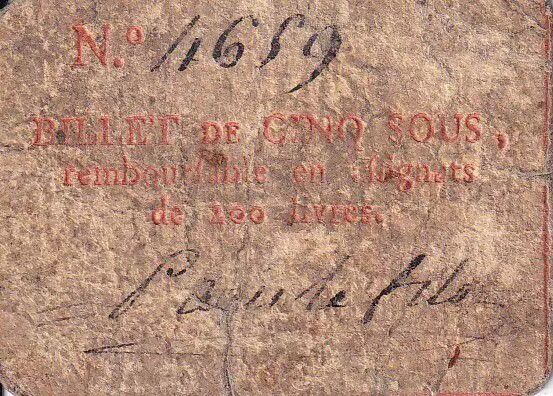 N.º 4659
BILLET DE CINQ SOUS,
remboursable en assignats
de 100 livres.
fils